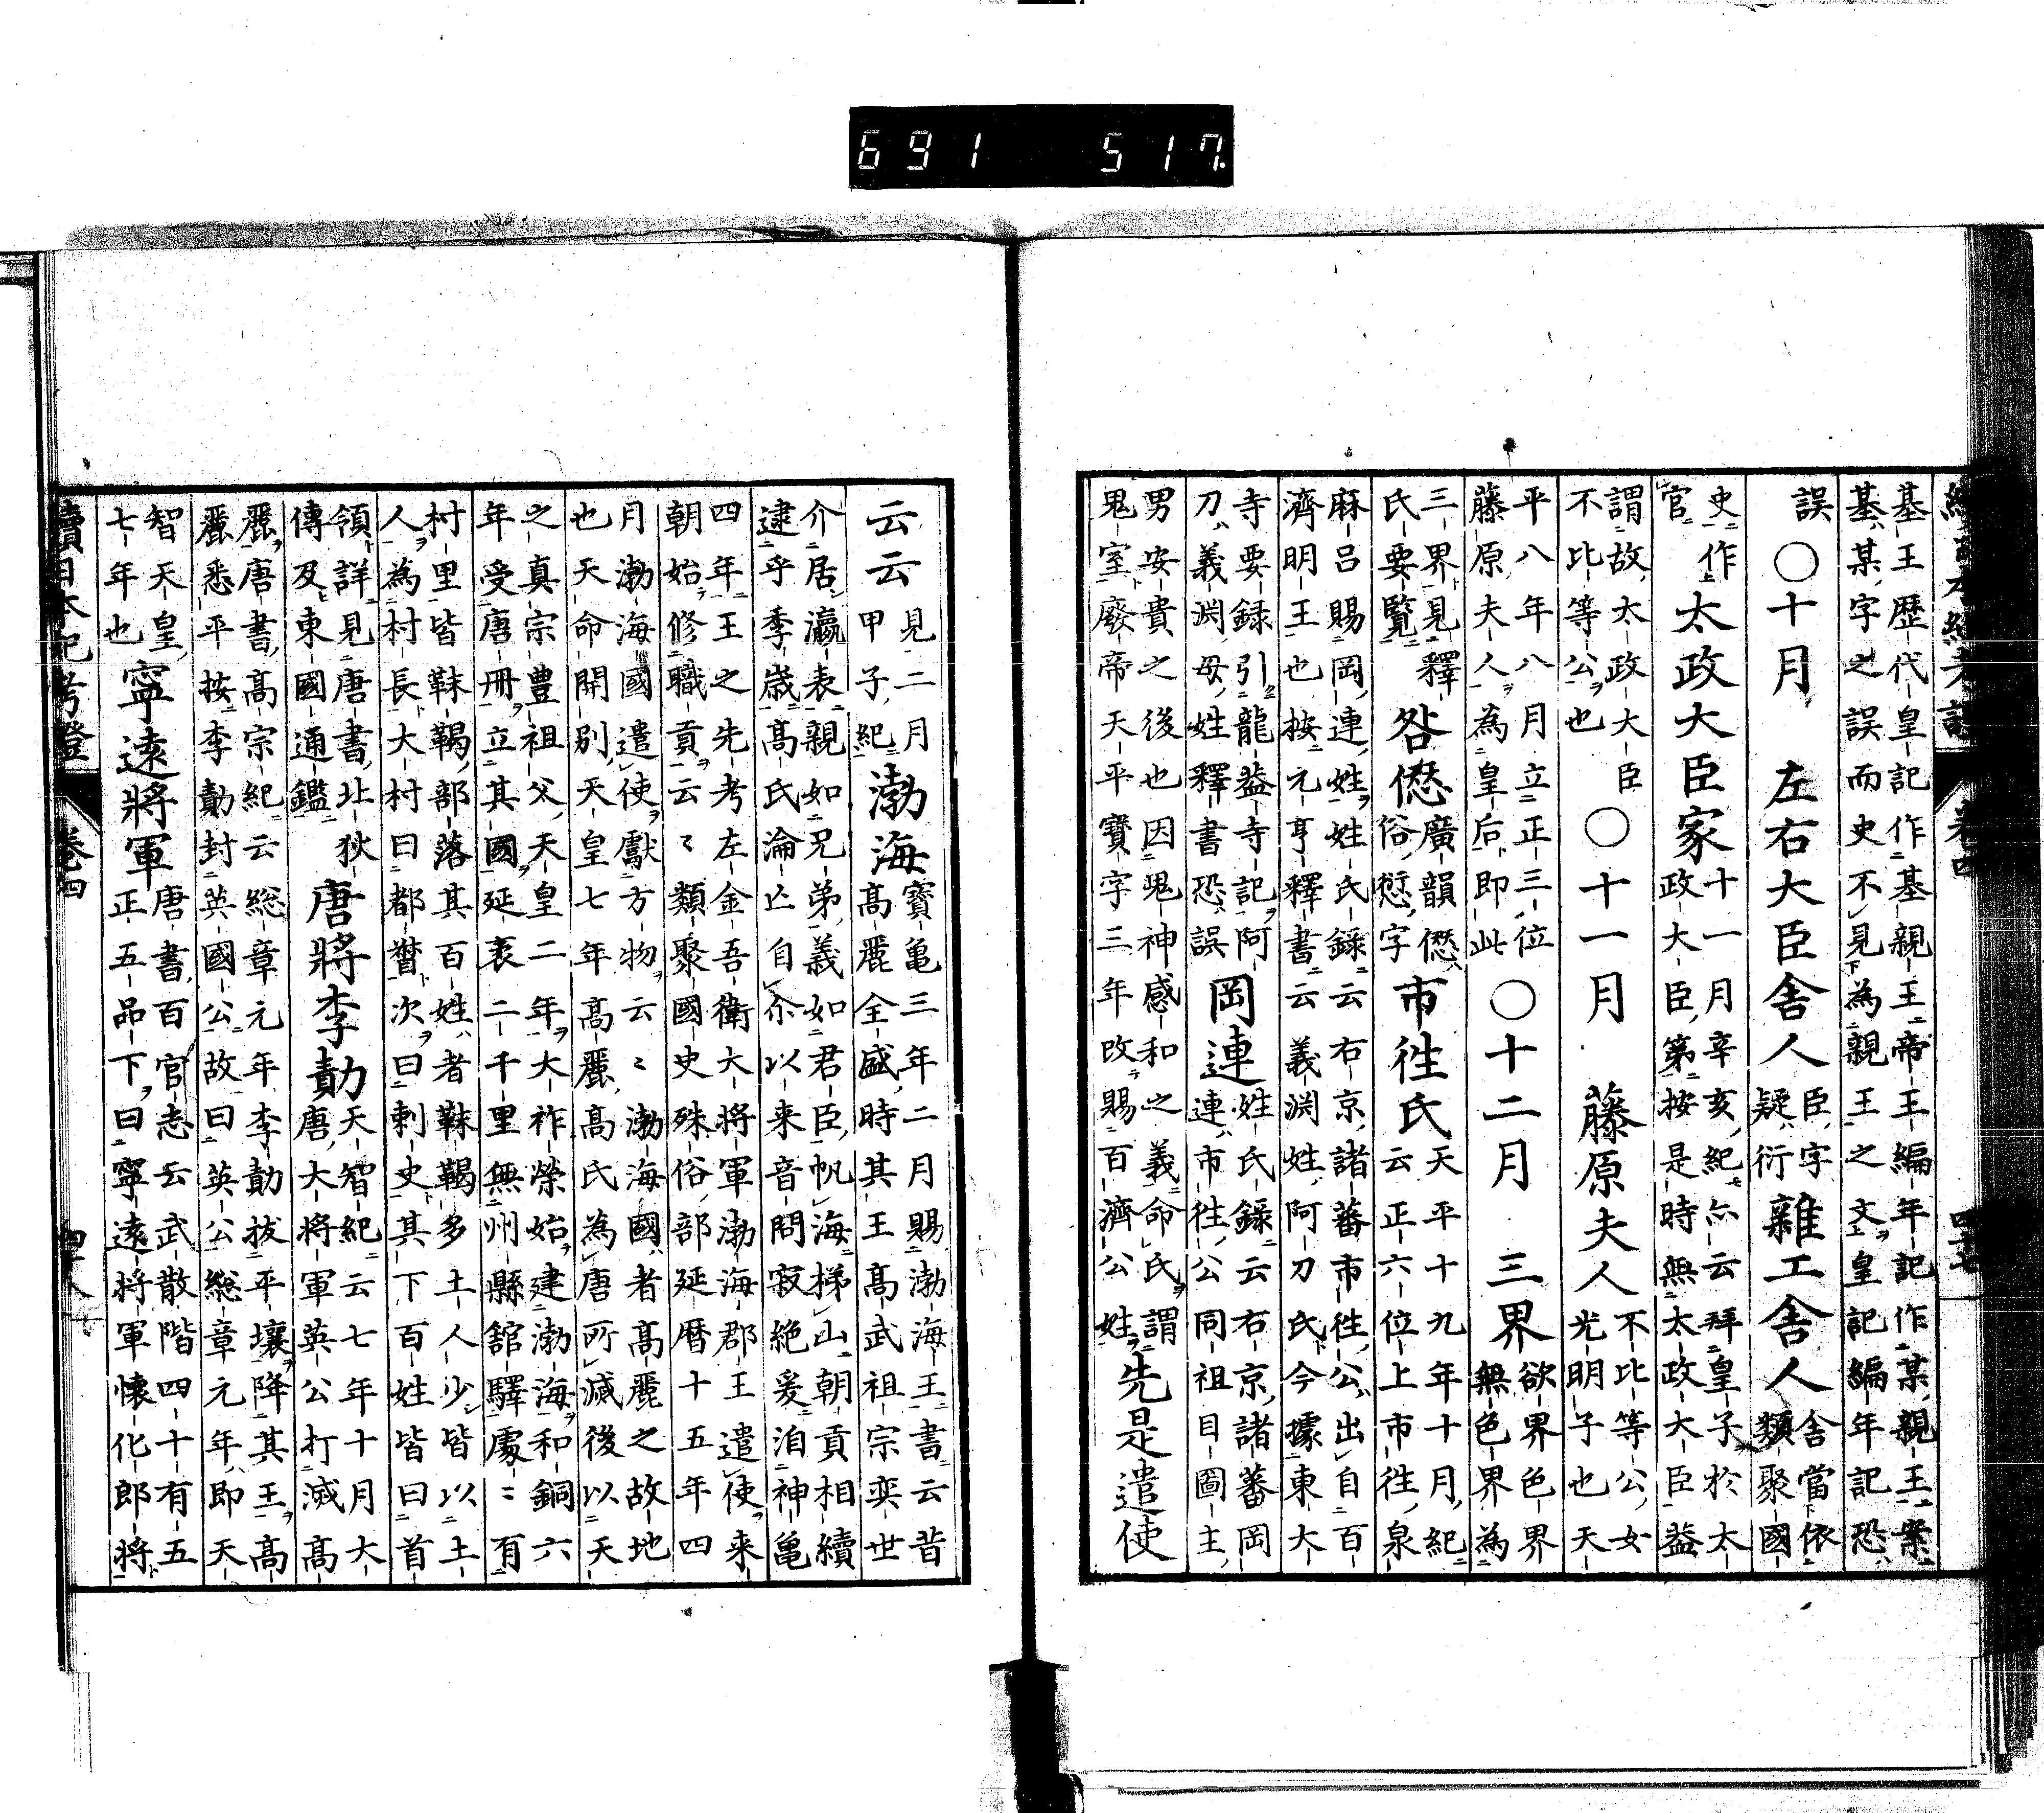 續日本紀考證 卷四 四十七
基王歷代皇記作基親王帝王編年記作某親王案
基某字之誤而史不見為親王之文皇記編年記恐
誤 〇十月 左右大臣舍人 臣字疑衍 雜工舍人 舍當依類聚國
史作官 太政大臣家 十一月辛亥紀亦云拜皇子於太政大臣第按是時無太政大臣益
謂故太政大臣不比等公也 〇十一月 藤原夫人 不比等公女光明子也天
平八年八月立正三位藤原夫人為皇后即此 〇十二月 三界 欲界色界無色界為
三界見釋氏要覽 咎僁 廣韻僁俗愆字 市往氏 天平十九年十月紀云正六位上市往泉
麻呂賜岡連姓姓氏錄云右京諸蕃市往公出自百
濟明王也按元亨釋書云義渊姓阿刀氏今據東大
寺要録引龍益寺記阿刀義渊母姓釋書恐誤 岡連 姓氏錄云右京諸蕃岡連市往公同祖目圖主
男安貴之後也因鬼神感和之義命氏謂鬼室廢帝天平寶字三年改賜百濟公姓 先是遣使
云云 見二月甲子紀 渤海 寶亀三年二月賜渤海王書云昔高麗全盛時其王高武祖宗奕世
介居瀛表親如兄弟義如君臣帆海梯山朝貢相續
逮乎季歳高氏淪亡自尒以来音問寂絶爰洎神亀
四年王之先考左金吾衛大將軍渤海郡王遣使来
朝始修職貢云〻類聚國史殊俗部延暦十五年四
月渤海國遣使獻方物云〻渤海國者高麗之故地
也天命開別天皇七年高麗高氏為唐所滅後以天
之真宗豊祖父天皇二年大祚榮始建渤海和銅六
年受唐冊立其國延袤二千里無州縣舘驛處〻有
村里皆靺鞨部落其百姓者靺鞨多土人少皆以土
人為村長大村曰都督次曰刺史其下百姓皆曰首
領詳見唐書北狄傳及東國通鑑 唐將李勣 天智紀云七年十月大唐大將軍英公打滅高
麗唐書高宗紀云総章元年李勣拔平壤降其王高
麗悉平按李勣封英國公故曰英公総章元年即天
智天皇七年也 寧遠將軍 唐書百官志云武散階四十有五正五品下曰寧遠將軍懷化郎將
續日本紀考證 卷四 四十八
691 517